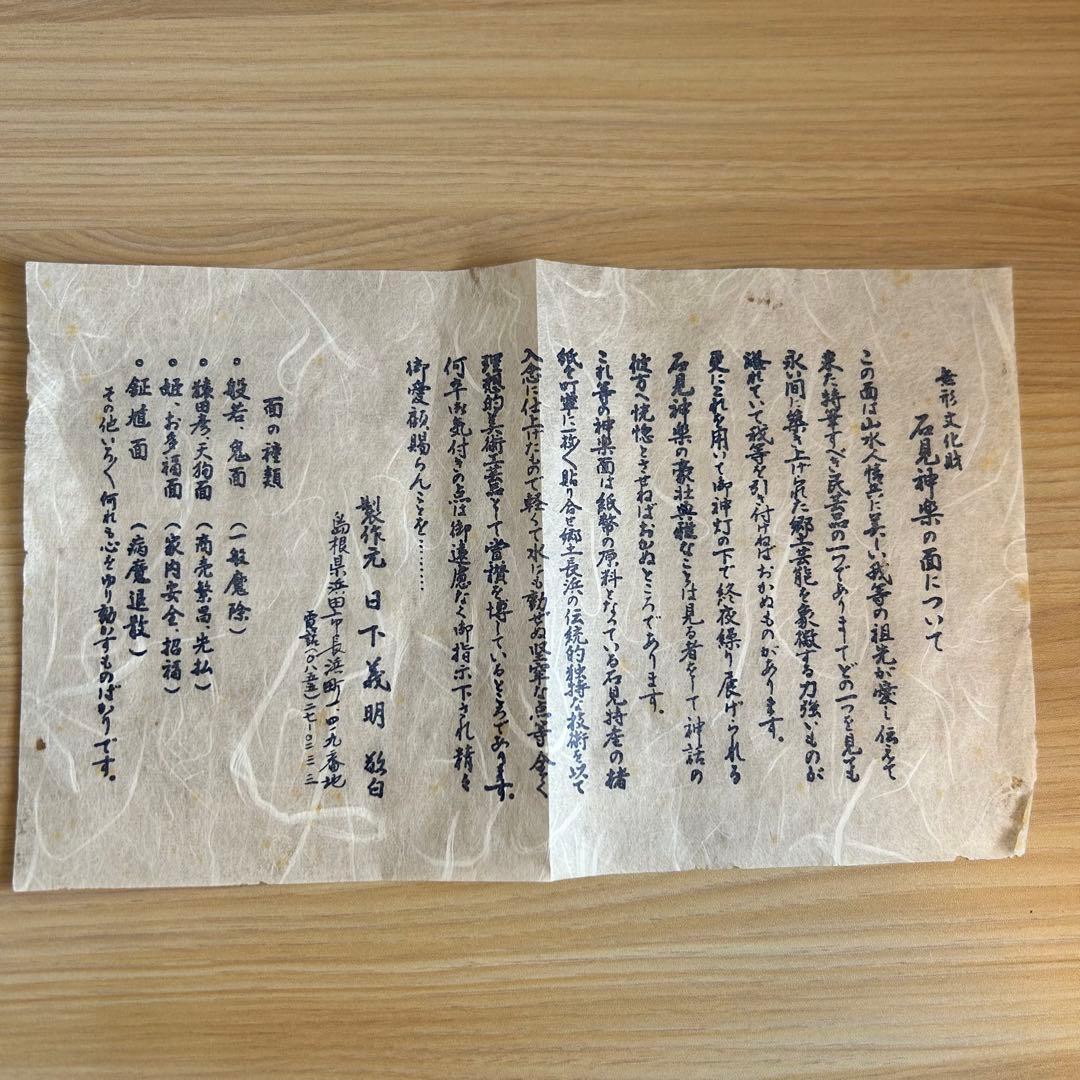 無形文化財
石見神楽の面について
この面は山水人情共に美しい我等の祖先が愛し伝えて
来た特筆すべき民芸品の一つでありましてどの一つを見ても
永い間に築き上げられた郷土芸能を象徴する力強いものが
溢れていて我等を引き付けねばおかぬものがあります。
更にこれを用いて御神灯の下で終夜繰り展げられる
石見神楽の豪壮典雅なことは見る者をして神話の
彼方へ恍惚とさせねばおかぬところであります。
これ等の神楽面は紙幣の原料となっている石見特産の楮
紙を叮嚀に一枚〱貼り合せ郷土長浜の伝統的独特な技術を以て
入念に仕上げたもので軽くて水にも動ぜぬ堅牢な点等全く
理想的美術工芸品として賞讃を博しているところであります。
何卒お気付きの点は御遠慮なく御指示下され精々
御愛顧賜らんことを………
製作元 日下義明 敬白
島根県浜田市長浜町一四九番地
電話(〇八五五)二七‐〇二三三
面の種類
◦般若、鬼面 (一般魔除)
◦猿田彦、天狗面 (商売繁昌、先払)
◦姫、お多福面 (家内安全、招福)
◦鍾馗面 (病魔退散)
その他いろ〱何れも心をゆり動かすものばかりです。